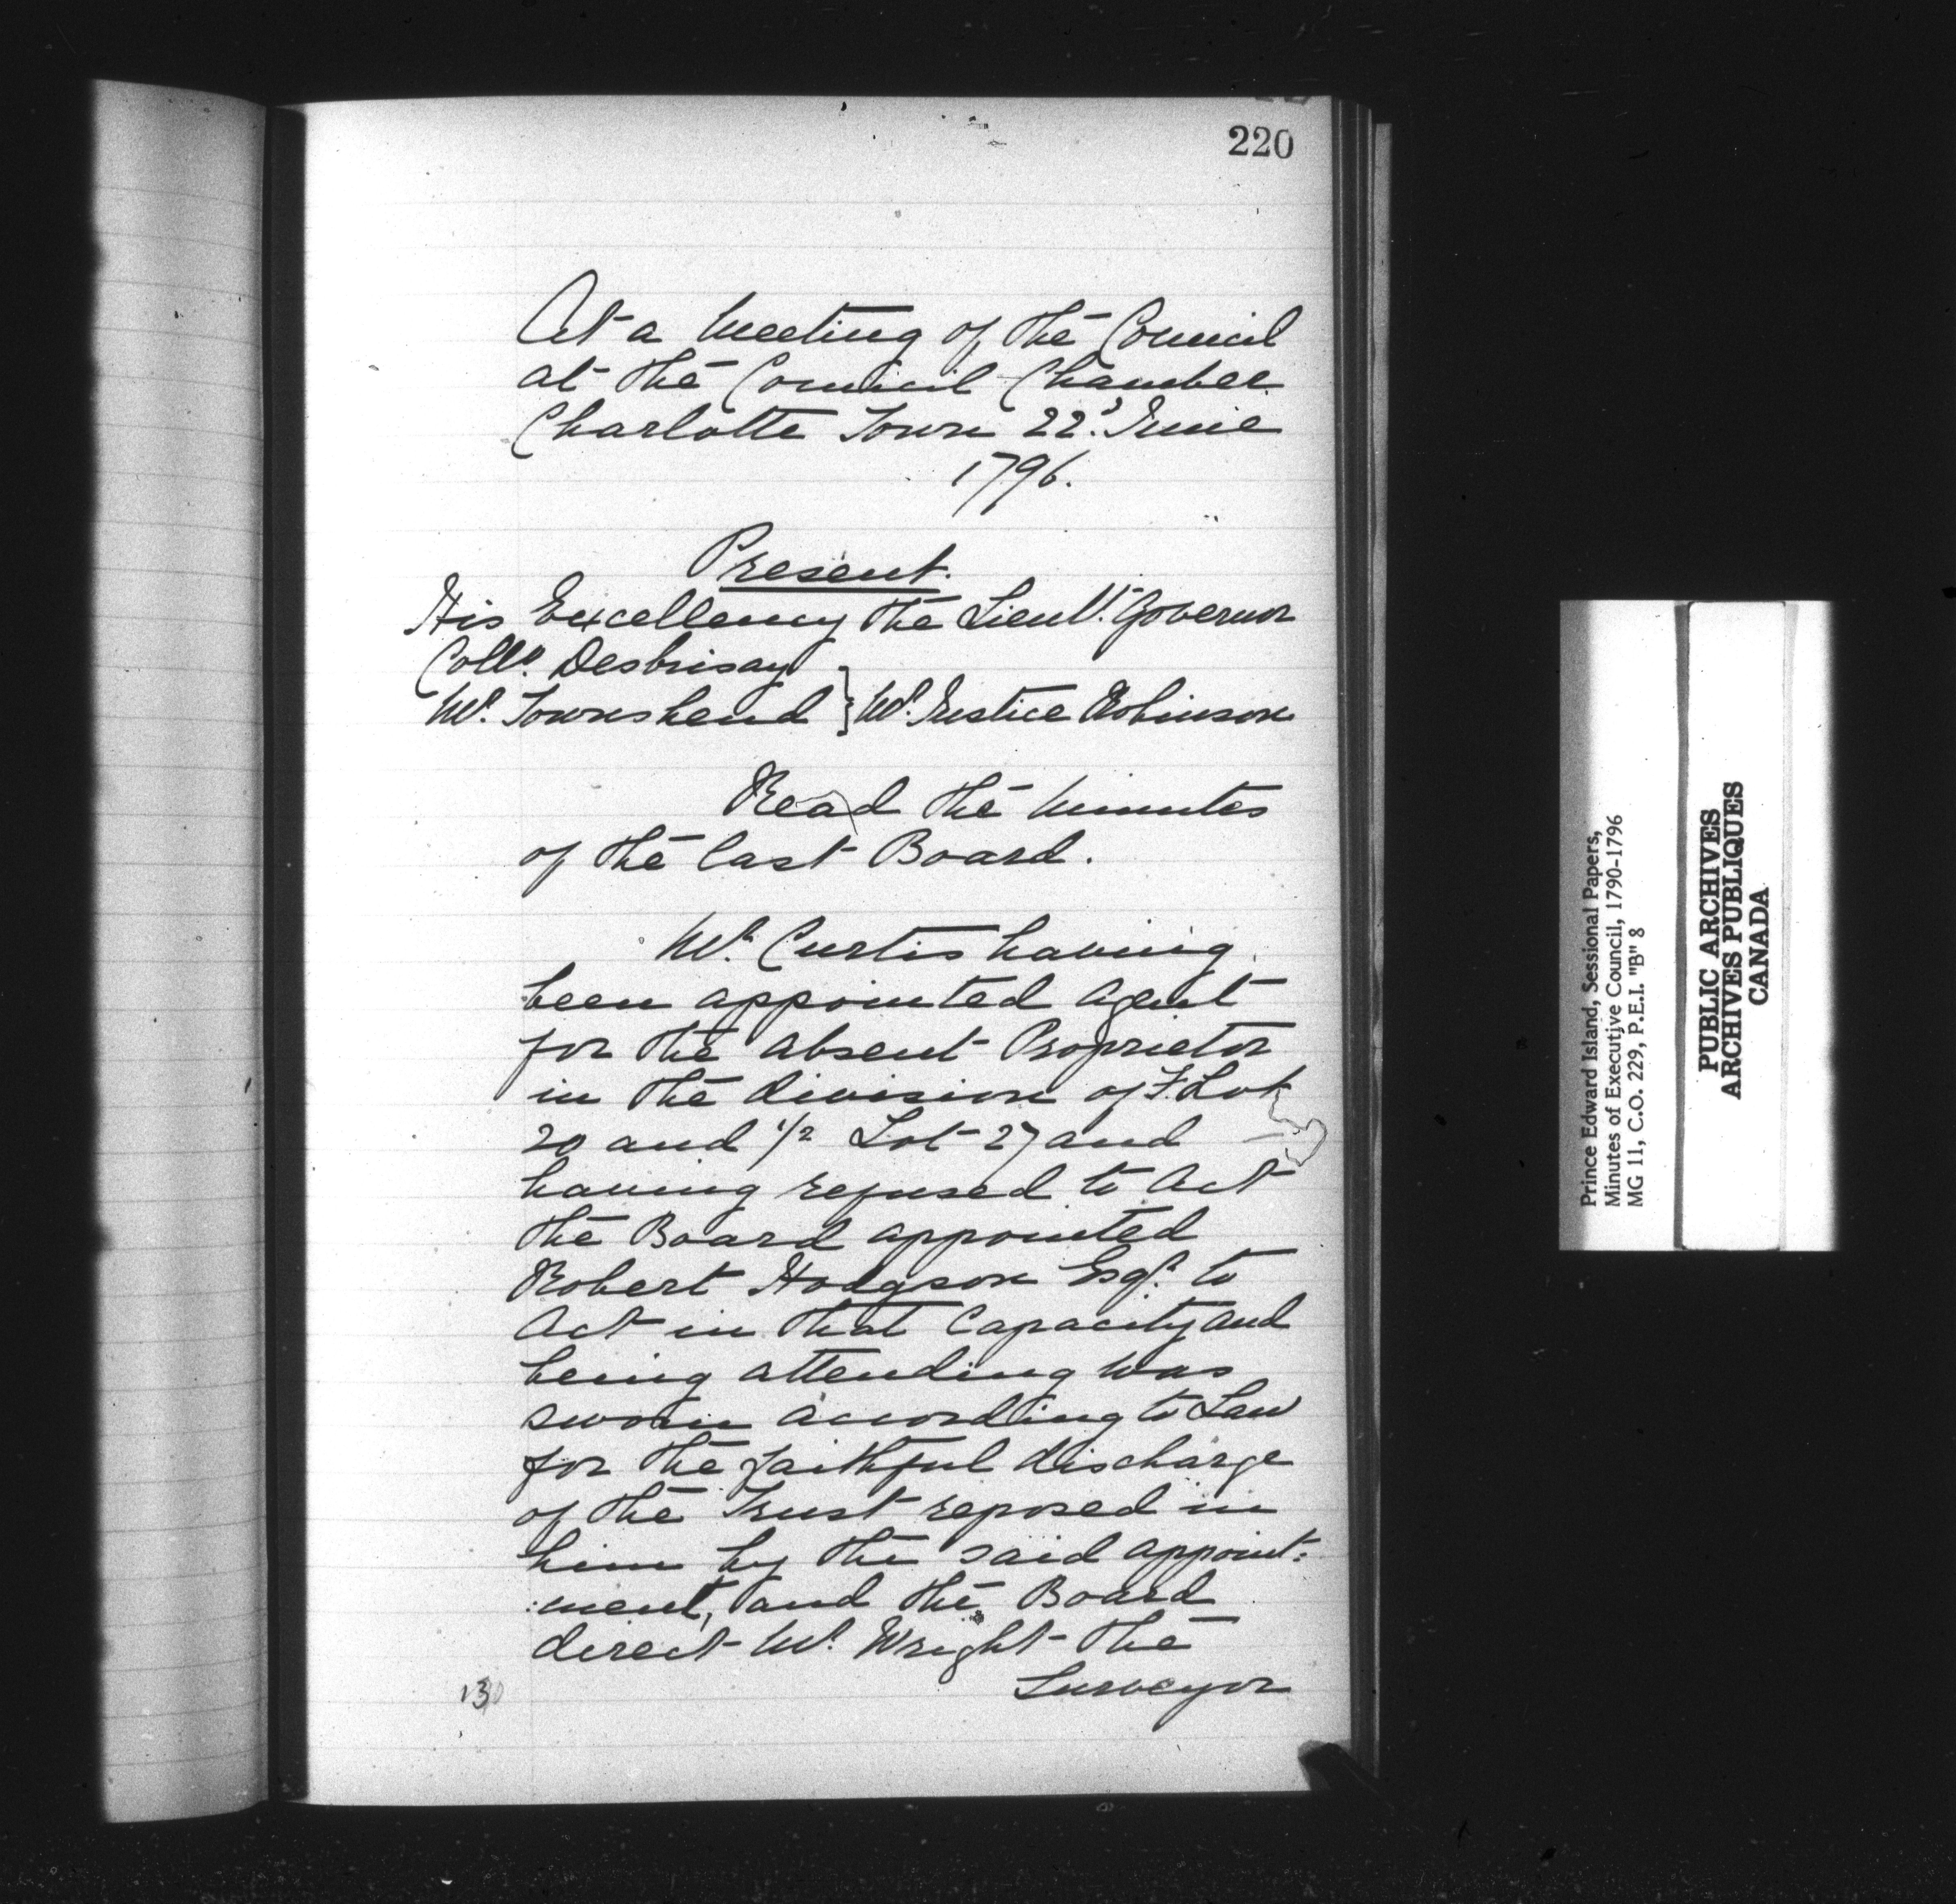 220
At a Meeting of the Council
at the Council Chamber
Charlotte Town 22d. June
1796.
Present.
His Excellency the Lieut. Governor
Collo. Desbrisay
Mr. Townshend } Mr. Justice Robinson
Read the Minutes
of the last Board.
Mr. Curtis having
been appointed agent
for the absent Proprietor
in the division of F. Lot
20 and 1/2 Lot 27 and
having refused to Act
the Board appointed
Robert Hodgson Esqr. to
Act in that Capacity and
being attending was
sworn according to Law
for the faithful discharge
of the Trust reposed in
him by the said appoint:
:ment, and the Board
direct Mr. Wright the
Surveyor
Prince Edward Island, Sessional Papers,
Minutes of Executive Council, 1790-1796
MG 11, C.O. 229, P.E.I. "B" 8
PUBLIC ARCHIVES
ARCHIVES PUBLIQUES
CANADA